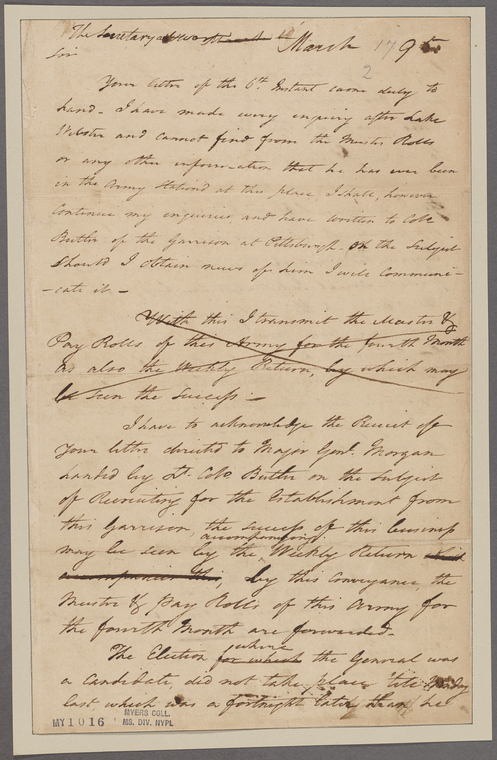 The Secretary at War March 1795
2
Sir
Your letter of the 6th Instant came duly to
hand - I have made every inquiry after Luke
Webster and cannot find from the Muster Rolls
or any other information that he has ever been
in the Army Stationed at this place I shall, however
Continue my enquiries, and have written to Colo
Butler of the Garrison at Pittsburgh on the Subject
Should I obtain news of him I will Communi-
-cate it -
With this I transmit the Muster &
Pay Rolls of this Army for the fourth Month
as also the Weekly Return, by which may
be seen the Success -
I have to acknowledge the Receit of
Your letter directed to Major Genl. Morgan
handed by Lt. Colo Butler on the Subject
of Recruiting for the Establishment from
this Garrison, the success of this business
accompanying
may be seen by the Weekly Return
accompanies this, by this Conveyance, the
Muster & Pay Rolls of this Army for
the fourth Month are forwarded -
where
The Election for which the General was
a Candidate did not take place till
last which was a fortnight later than he
MY 1016
MYERS COLL.
MS. DIV. NYPL